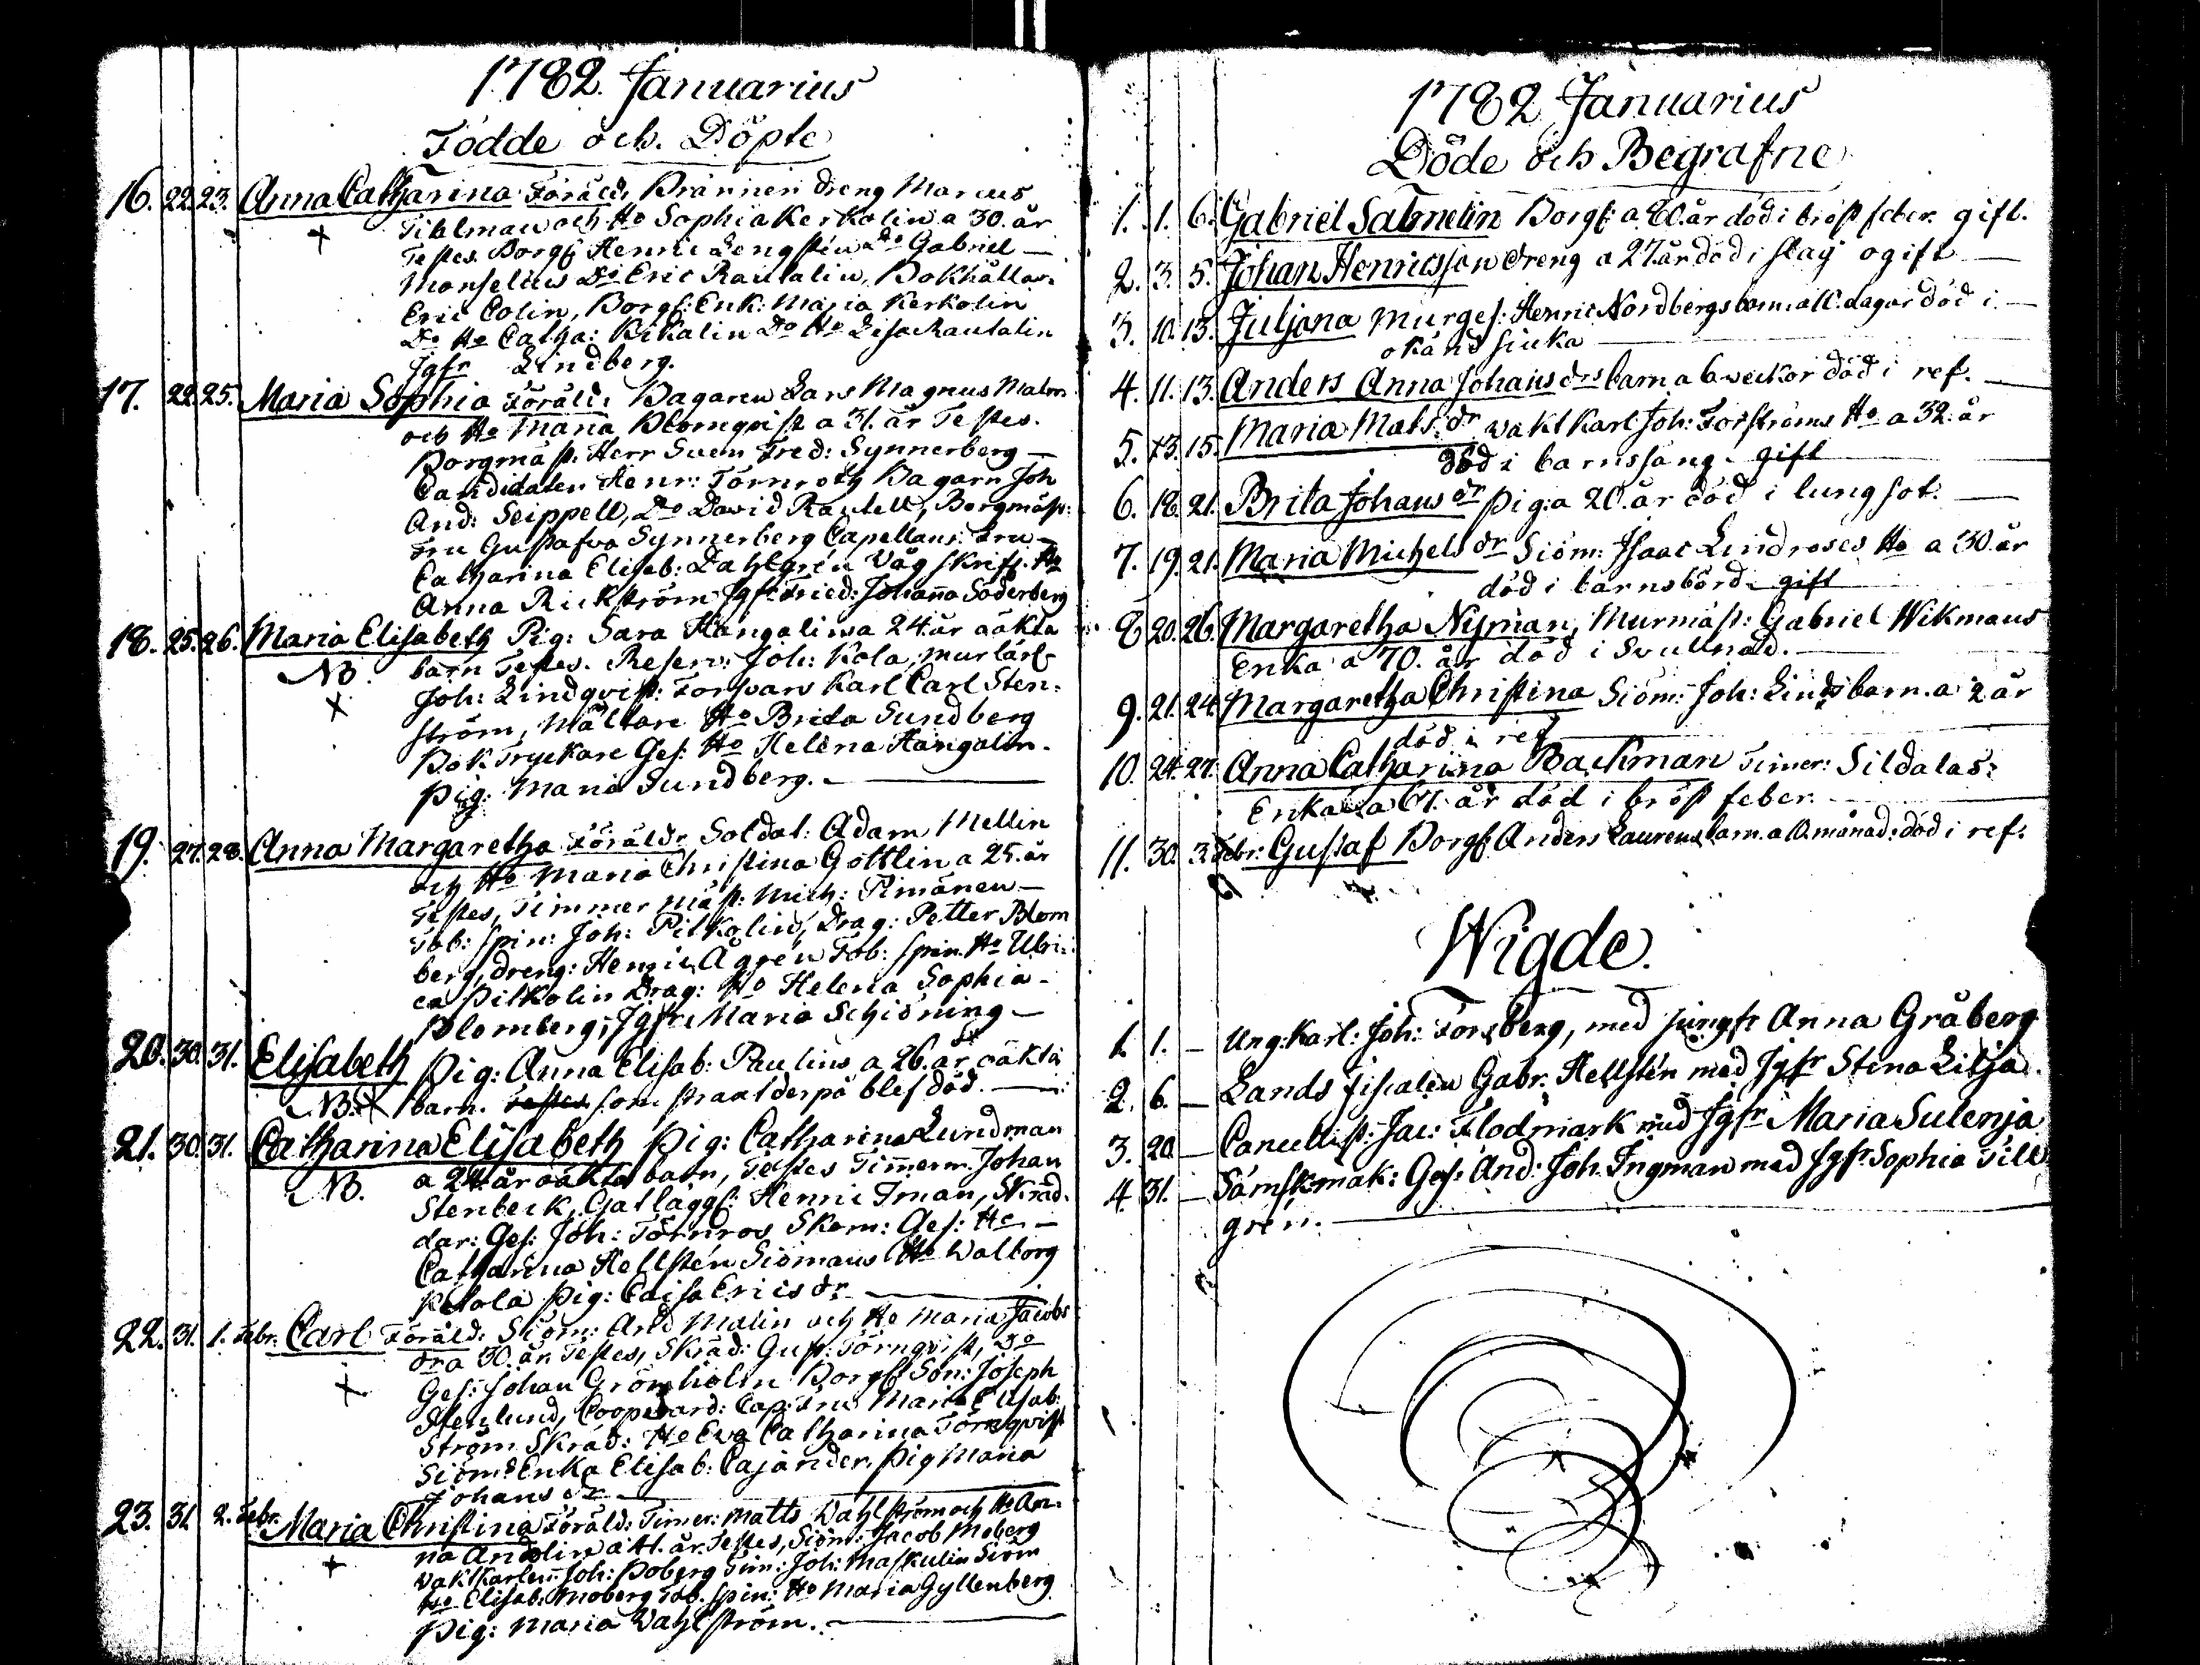 1782. Januarius
Födde och. Döpte
16. 22. 23. Anna Catharina Föräld: Bränneri dreng Marcus
Tihlman och Ho Sophia Kerkolin a 30. år
Testes. Borg: Henric Lengsten Do Gabriel —
Monselius Do Eric Rautalin, Bokhållar.
Eric Colin, Borg: Enk: Maria Kerkolin
Do Ho Catha: Kikalin Do Ho Lisa Rautalin
Jgfr Lindberg.
17. 22. 25. Maria Sophia Föräld: Bagaren Lars Magnus Malm
och Ho Maria Blomqvist a 31. år Testes.
Borgmäst: Herr Svem Fred: Synnerberg —
Candidaten Henr: Törnroth Bagarn Joh
And: Seippell, Do David Rautell, Borgmäst:
Fru Gustafva Synnerberg Capellans: Fru —
Catharina Elisab: Dahlgrén Våg skrif: Ho
Anna Rickström Jgfr Fried: Johanna Söderberg
18. 25. 26. Maria Elisabeth Pig: Sara Hangalin a 24. år oäkta
NB. barn Testes. Reserv: Joh: Kola, murlärl
Joh: Lindqvist: Forsvars Karl Carl Sten-
ström, Mältare Ho Brita Sundberg
Boktryckare Ges: Ho Helena Hangalin.
Pig: Maria Sundberg. —
19. 27. 28. Anna Margaretha Föräldr Soldat: Adam Mellin
och Ho Maria Christina Gottlin a 25. år
Testes, Timmer mäst: Mich: Pimänen —
Tob: spin: Joh: Pitkolin, Drag: Petter Blom
berg, dreng: Henric Ågrén Tob: spin. Ho Ulri-
ca Pitkolin Drag: Ho Helena Sophia —
Blomberg, Jgfr: Maria Schiöning —
20. 30. 31. Elisabeth Pig: Anna Elisab: Paulins a 26. år oäkta
NB. barn. Testes som straxt derpå blef död. —
21. 30. 31. Catharina Elisabeth Pig: Catharina Lundman
NB. a 24. år oäkta barn, Testes Timerm. Johan
Stenbeck, Gatläggs: Henric Iman, Skräd-
dar: Ges: Joh: Törnros Skom: Ges: Ho —
Catharina Hellstén Siömans Ho Walborg
Ketola Pig: Caisa Erics dr. —
22. 31. 1. Febr. Carl Föräld: Siöm: And Malin och Ho Maria Jacobs
dr a 30. år. Testes, Skräd: Gust: Törnqvist, Do
Ges: Johan Grönholm Borg: Son: Joseph
Stenlund, Coopvard: Cap: Fru Maria Elisab:
Ström Skräd: Ho Eva Catharina Törnqvist
Siöms Enka Elisab: Cajander. Pig Maria
Johans dr —
23. 31. 2. Febr. Maria Christina Föräld: Timer: Matts Wahlström och Ho An-
na Andelin a 41. år. Testes, Siöm: Jacob Moberg
Waktkarlen: Joh: Boberg Tim: Joh: Maskulin Siöm
Ho Elisab: Moberg Tob. spin: Ho Maria Gyllenberg
Pig: Maria Wahlström. —
1782 Januarius
Döde och Begrafne
1. 1. 6. Gabriel Salmelin Borg: a 60. år död i bröst feber. gift.
2. 3. 5. Johan Henricsson dreng a 27. år död i slag ogift —
3. 10. 13. Juljana murges: Henric Nordbergs barn. a 11. dagar död i —
okänd siuka —
4. 11. 13. Anders Anna Johans drs barn a 6 weckor död i ref. —
5. 13. 15. Maria Mats dr wakt Karl Joh: Forströms Ho a 32. år
död i barnssäng — gift
6. 18. 21. Brita Johans dr Piga a 20. år död i lungsot. —
7. 19. 21. Maria Michels dr Siöm: Isaac Lindroses Ho a 30. år
död i barnsbörd — gift
8 20. 26. Margaretha Nyman, Murmäst: Gabriel Wikmans
Enka a 70. år död i Svullnad. —
9. 21. 24. Margaretha Christina Siöm: Joh: Linds barn. a 2 år
död i ref —
10. 24. 27. Anna Catharina Backman Timer: Sildalas:
Enka a 67. år död i bröst feber. —
11. 30. 3. Febr: Gustaf Borg: Anders Laurens barn. a 10. månad: död i ref.
Wigde.
1. 1. — Ung: Karl: Joh: Forsberg, med jungfr Anna Gråberg
2. 6. — Lands fiscalen Gabr. Hellstén med Jgfr Stina Lilja.
3. 20. — Cancellist: Jac: Flodmark med Jgfr Maria Sulenja
4. 31. — Sämskmak: Ges: And: Joh. Ingman med Jgfr Sophia Till
grén. —